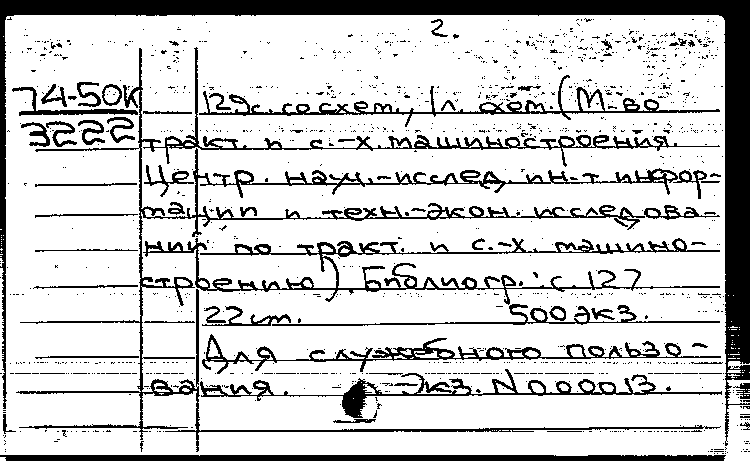 2.
74-50К
3222
129с. со схем., 1л. схем. (М-во
тракт. и с.-х. машиностроения.
Центр. науч.-исслед. ин-т инфор-
мации и техн.-экон. исследова-
ний по тракт. и с.-х. машино-
строению). Библиогр.: с. 127.
22см. 500 экз.
Для служебного пользо-
вания. Экз. N 000013.